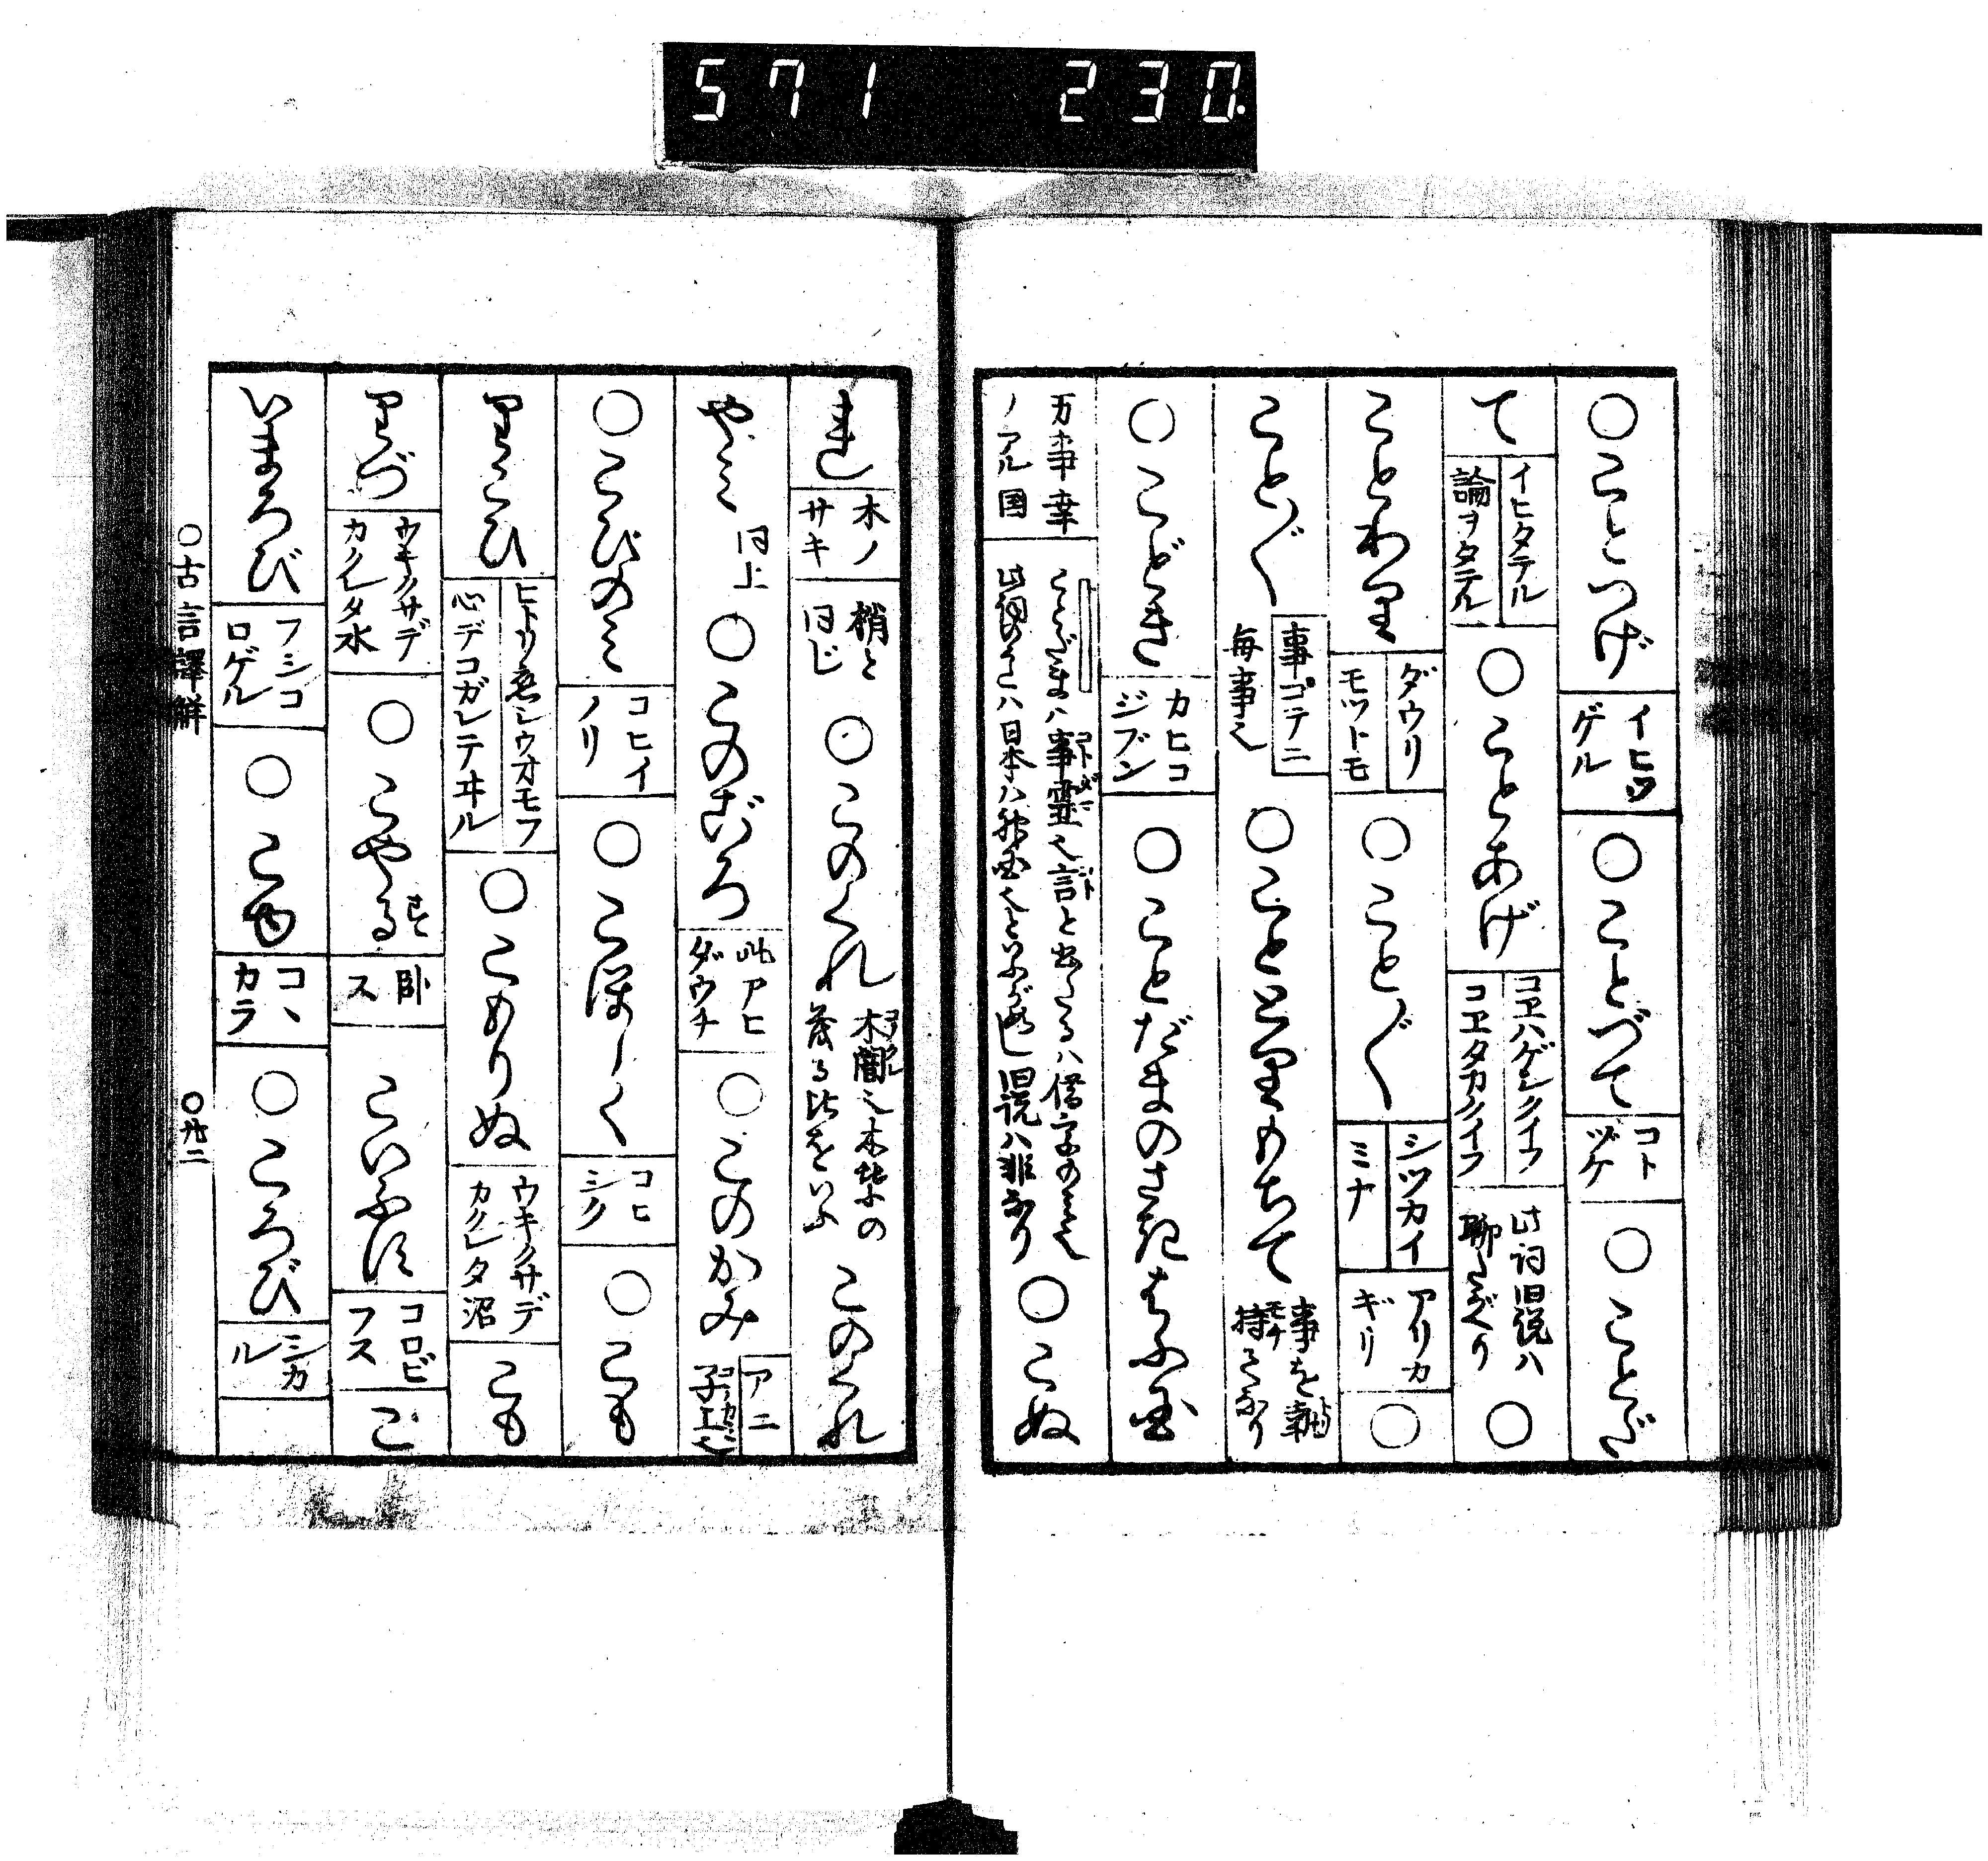 571 230
○ことつげ イヒツゲル ○ことづて コトヅケ ○ことだ
て イヒタテル 論ヲタテル ○ことあげ コヱハゲシクイフ コヱタカクイフ 此詞旧説ハ ○
ことわり ダウリ モツトモ ○こと〴〵 シツカイ ミナ アリカギリ ○
こと〴〵 事ゴテニ 毎事也 ○こととりもちて 事を執持てなり
○こどき カヒコジブン ○ことだまのさきはふ国
万事幸ノアル国 ことだまハ事霊也言と書たるハ借字のミ也 此詞のこハ日本ハ神国也といふが如し旧説ハ非なり ○こぬ
れ 木ノサキ 梢と同じ ○このくれ 木闇也木葉の茂る比をいふ このくれ
やミ 同上 ○このごろ 此アヒダウチ ○このかみ アニ 子上也
○こひのミ コヒイノリ ○こほしく コヒシク ○こも
りこひ ヒトリ恋シウオモフ 心デコガレテヰル ○こもりぬ ウキクサデカクレタ沼 こも
りづ ウキクサデカクレタ水 ○こやる 臥ス こいふす コロビフス こ
いまろび フシコロゲル ○こゆ コヽカラ ○ころび シカル
○古言譯解 ○廿二